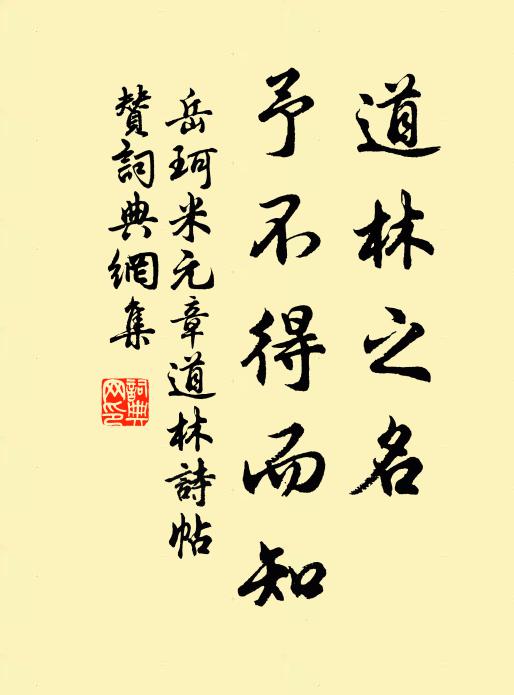 道林之名
予不得而知
岳珂米元章道林詩帖
贊詞典網集
詞典网印